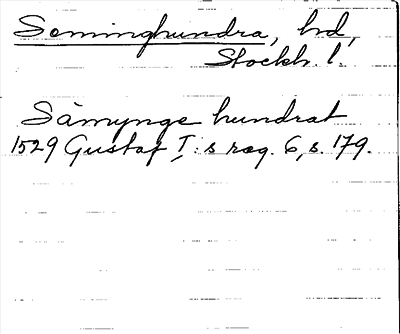 Seminghundra, hd,
Stockh. l.
Sämynge hundrat
1529 Gustaf I:s reg. 6, s. 179.